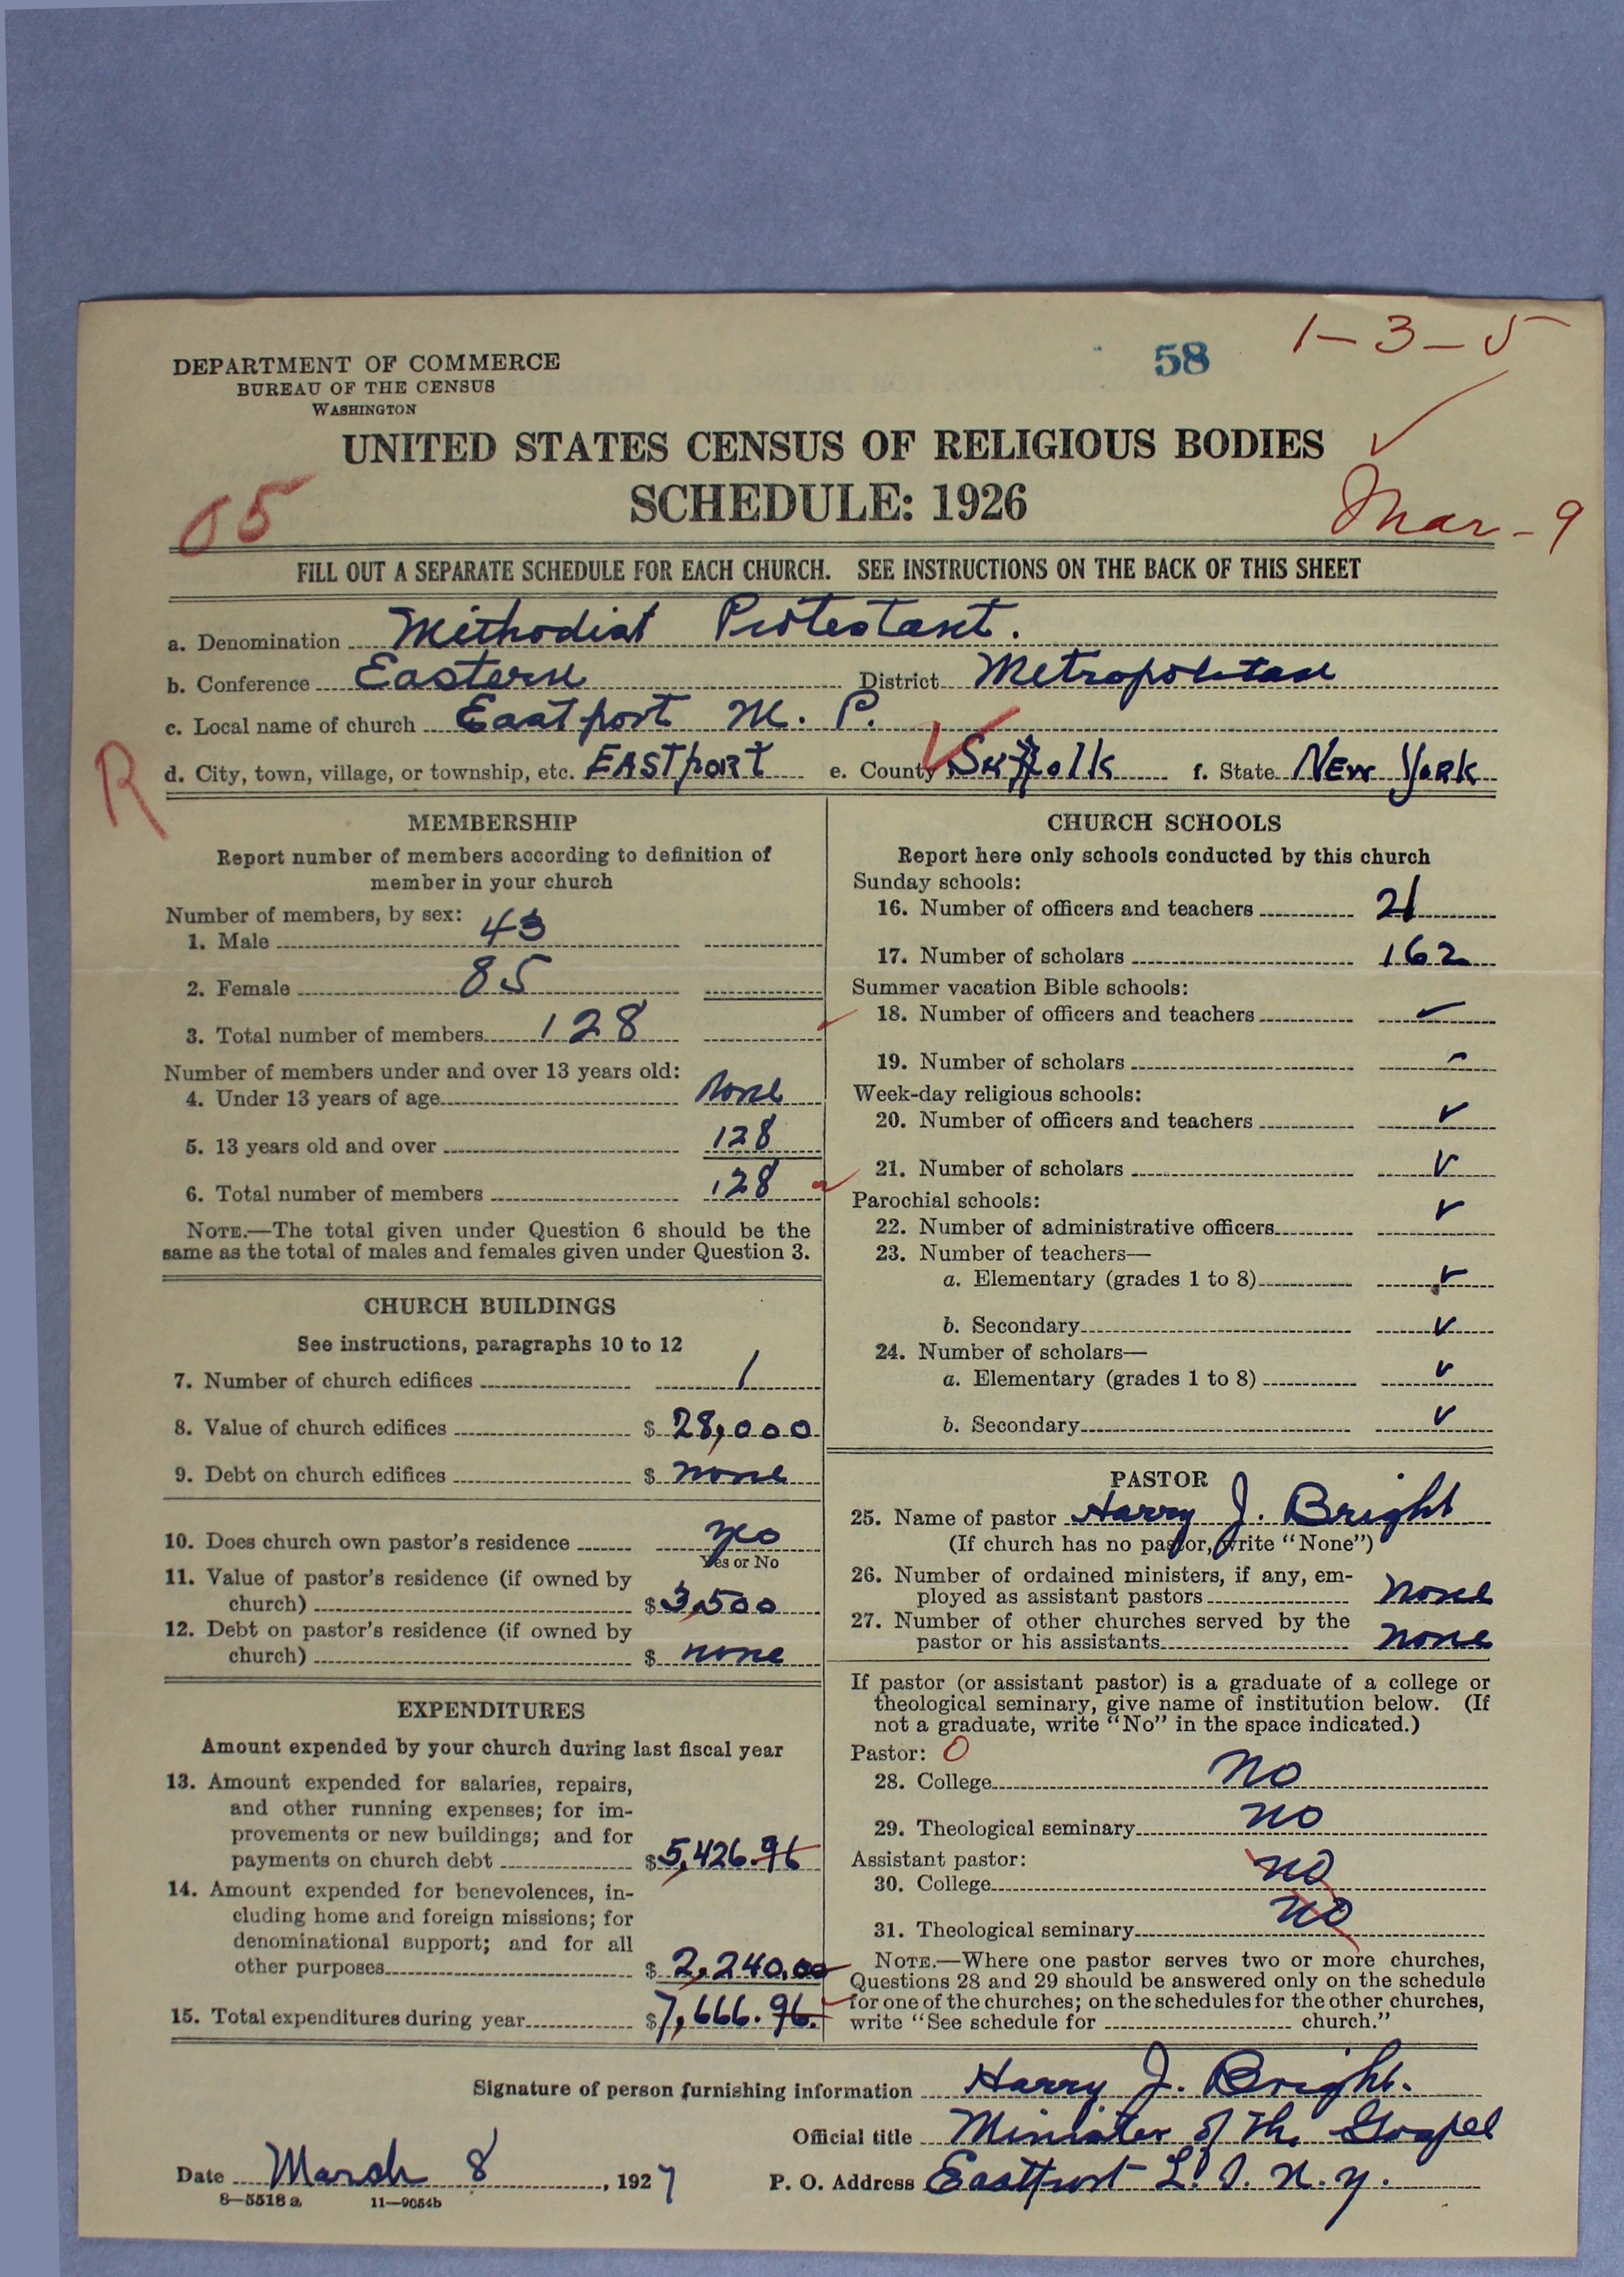 58
1-3-5
DEPARTMENT OF COMMERCE
BUREAU OF THE CENSUS
WASHINGTON
UNITED STATES CENSUS OF RELIGIOUS BODIES
SCHEDULE: 1926
05
Mar-9
FILL OUT A SEPARATE SCHEDULE FOR EACH CHURCH. SEE INSTRUCTIONS ON THE BACK OF THIS SHEET
a. Denomination Methodist Protestant.
b. Conference Eastern District Metropolitan
c. Local name of church Eastport M. P.
R
d. City, town, village, or township, etc. EASTport e. County Suffolk f. State NEW YORK
MEMBERSHIP
Report number of members according to definition of
member in your church
Number of members, by sex:
1. Male 43
2. Female 85
3. Total number of members 128
Number of members under and over 13 years old:
4. Under 13 years of age none
5. 13 years old and over 128
6. Total number of members 128
NOTE.—The total given under Question 6 should be the
same as the total of males and females given under Question 3.
CHURCH BUILDINGS
See instructions, paragraphs 10 to 12
7. Number of church edifices 1
8. Value of church edifices $ 28,000
9. Debt on church edifices $ none
10. Does church own pastor's residence yes
Yes or No
11. Value of pastor's residence (if owned by
church) $ 3,500
12. Debt on pastor's residence (if owned by
church) $ none
EXPENDITURES
Amount expended by your church during last fiscal year
13. Amount expended for salaries, repairs,
and other running expenses; for im-
provements or new buildings; and for
payments on church debt $ 5,426.96
14. Amount expended for benevolences, in-
cluding home and foreign missions; for
denominational support; and for all
other purposes $ 2,240.00
15. Total expenditures during year $ 7,666.96.
CHURCH SCHOOLS
Report here only schools conducted by this church
Sunday schools:
16. Number of officers and teachers 21
17. Number of scholars 162
Summer vacation Bible schools:
18. Number of officers and teachers
19. Number of scholars
Week-day religious schools:
20. Number of officers and teachers
21. Number of scholars
Parochial schools:
22. Number of administrative officers
23. Number of teachers—
a. Elementary (grades 1 to 8)
b. Secondary
24. Number of scholars—
a. Elementary (grades 1 to 8)
b. Secondary
PASTOR
25. Name of pastor Harry J. Bright
(If church has no pastor, write "None")
26. Number of ordained ministers, if any, em-
ployed as assistant pastors none
27. Number of other churches served by the
pastor or his assistants none
If pastor (or assistant pastor) is a graduate of a college or
theological seminary, give name of institution below. (If
not a graduate, write "No" in the space indicated.)
Pastor: 0
28. College no
29. Theological seminary no
Assistant pastor:
30. College no
31. Theological seminary no
NOTE.—Where one pastor serves two or more churches,
Questions 28 and 29 should be answered only on the schedule
for one of the churches; on the schedules for the other churches,
write "See schedule for church."
Signature of person furnishing information Harry J. Bright.
Official title Minister of the Gospel
Date March 8, 1927 P. O. Address Eastport L. I. N. Y.
8-5518 a 11-9054b